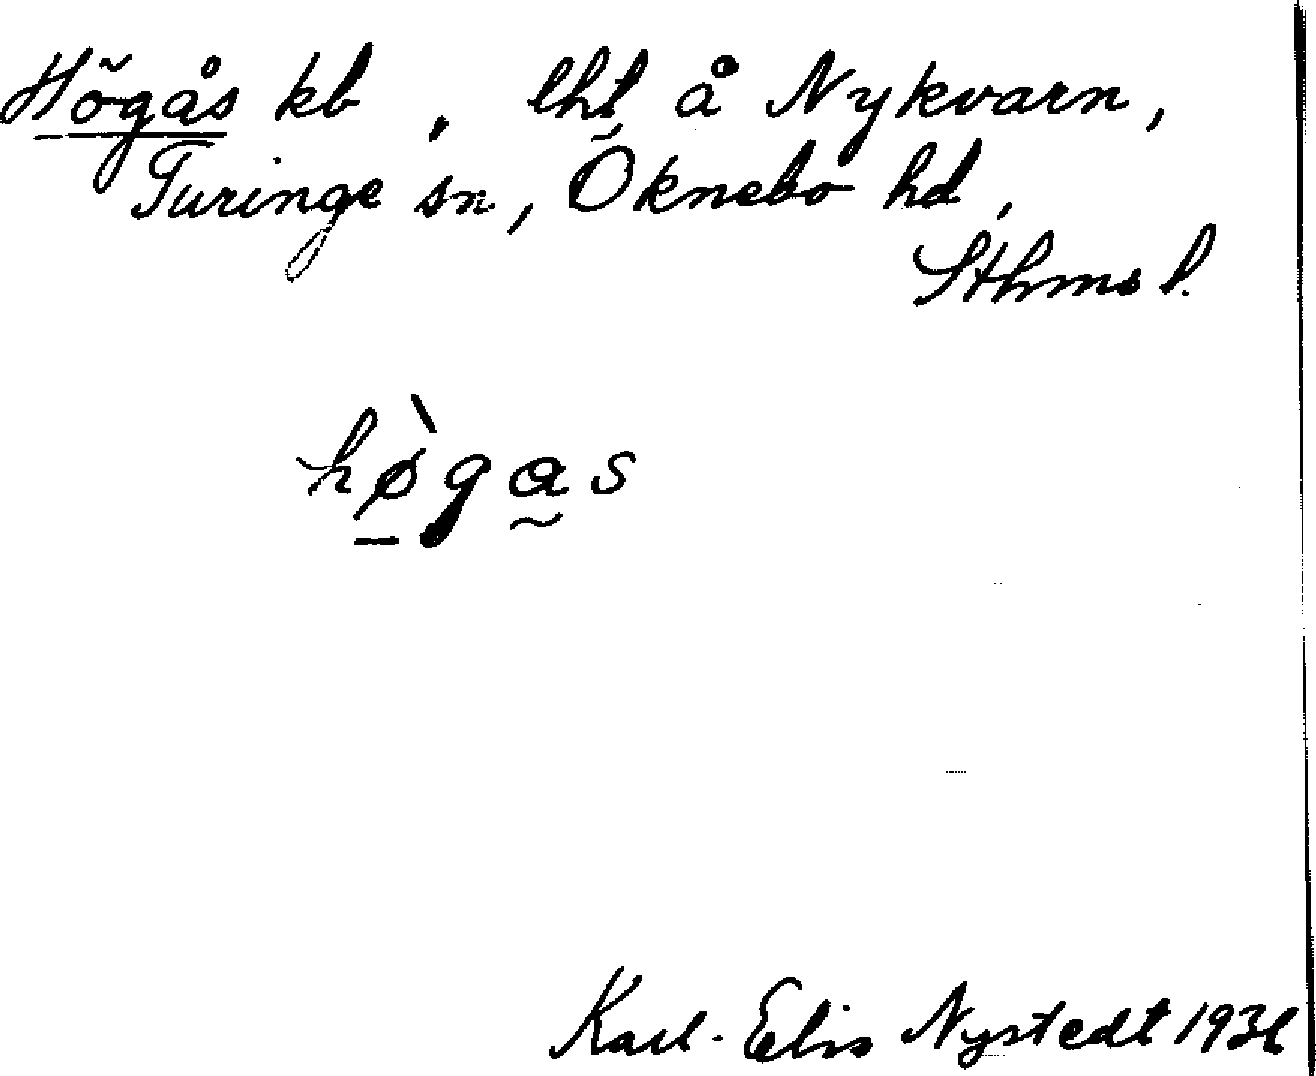 Högås kb, lht å Nykvarn,
Turinge sn, Öknebo hd,
Sthms l.
hø̀gas
Karl-Elis Nystedt 1936